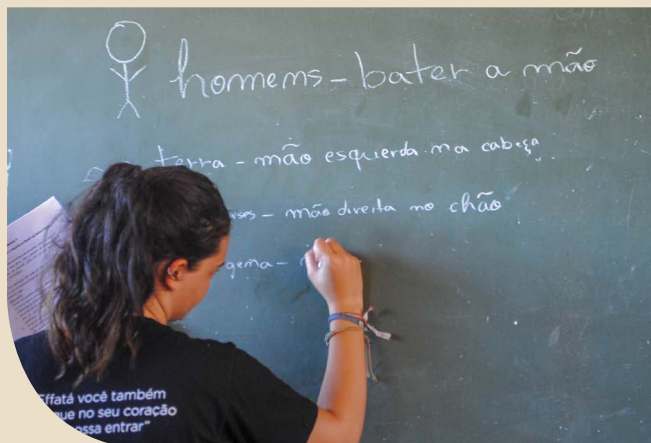 homems - bater a mão
terra - mão esquerda na cabeça
- mão direita no chão
gema -
Effatá você também
que no seu coração
ossa entrar"